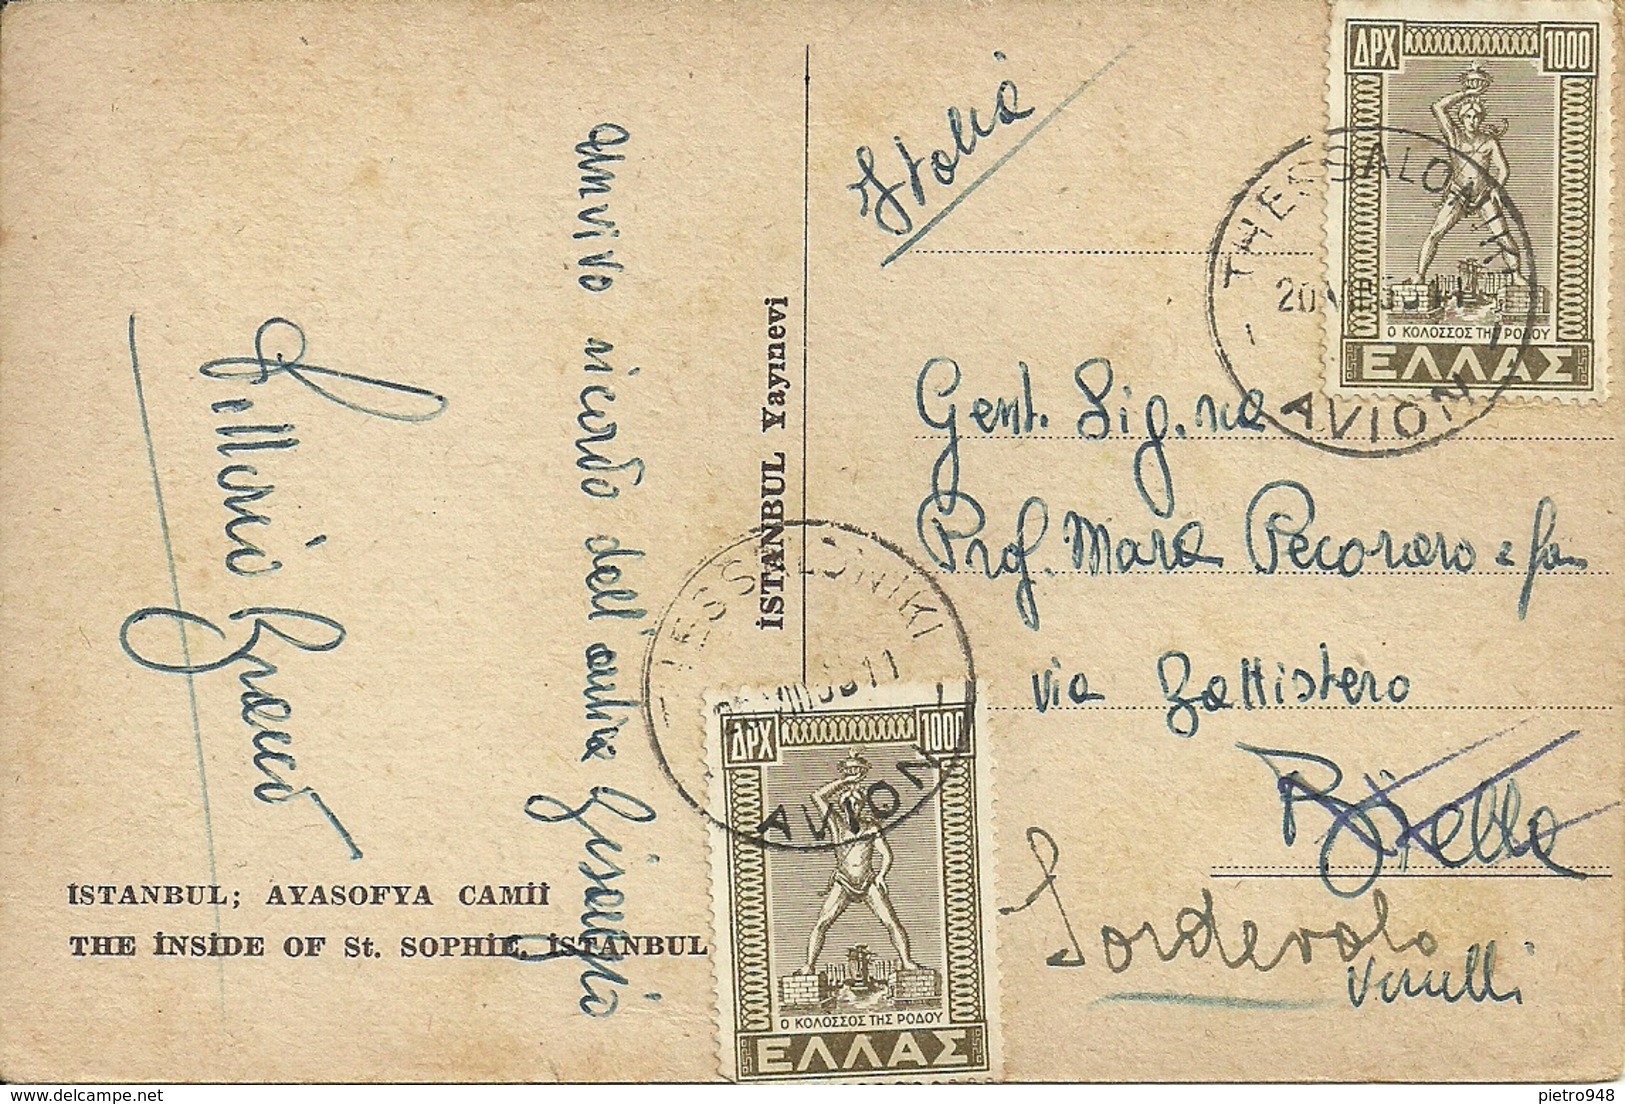 un vivo ricordo dell'antica Bisanzio
İSTANBUL; AYASOFYA CAMİİ
THE İNSİDE OF St. SOPHİE. İSTANBUL
İSTANBUL Yayınevi
Italia
Gent. Sig.na
Prof. Mara Pecoraro e fam
via Battistero
Biella
Sordevolo
Vercelli
ΔΡΧ 1000
Ο ΚΟΛΟΣΣΟΣ ΤΗΣ ΡΟΔΟΥ
ΕΛΛΑΣ
THESSALONIKI
AVION
ΔΡΧ 1000
Ο ΚΟΛΟΣΣΟΣ ΤΗΣ ΡΟΔΟΥ
ΕΛΛΑΣ
THESSALONIKI
AVION
pietro948